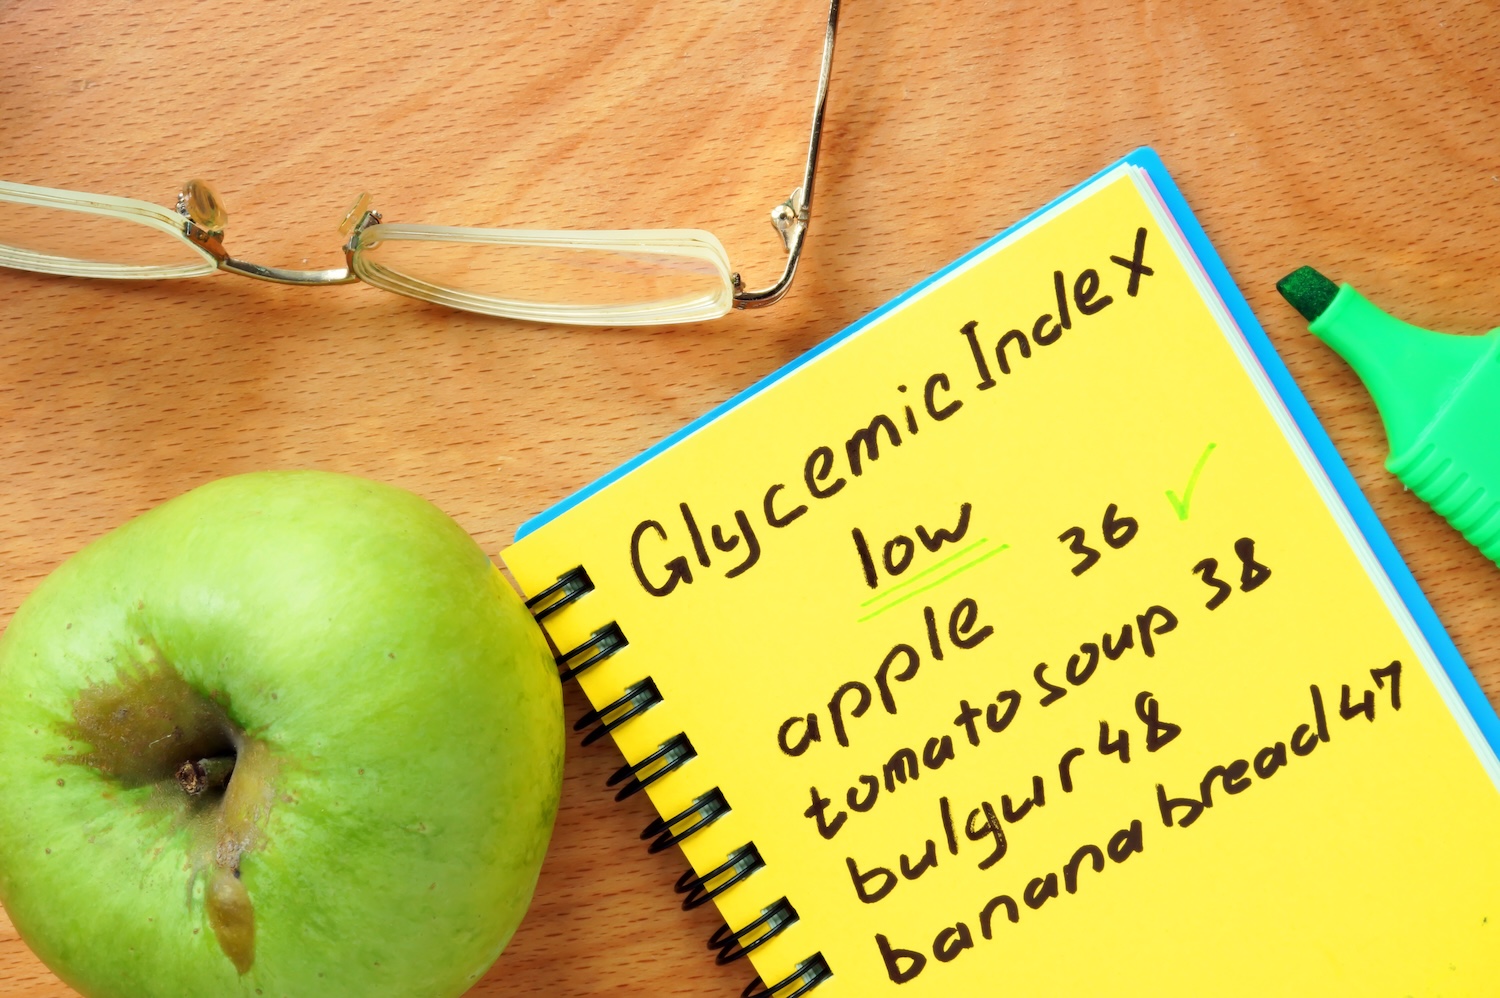 Glycemic Index
low
apple 36 ✓
tomato soup 38
bulgur 48
banana bread 47